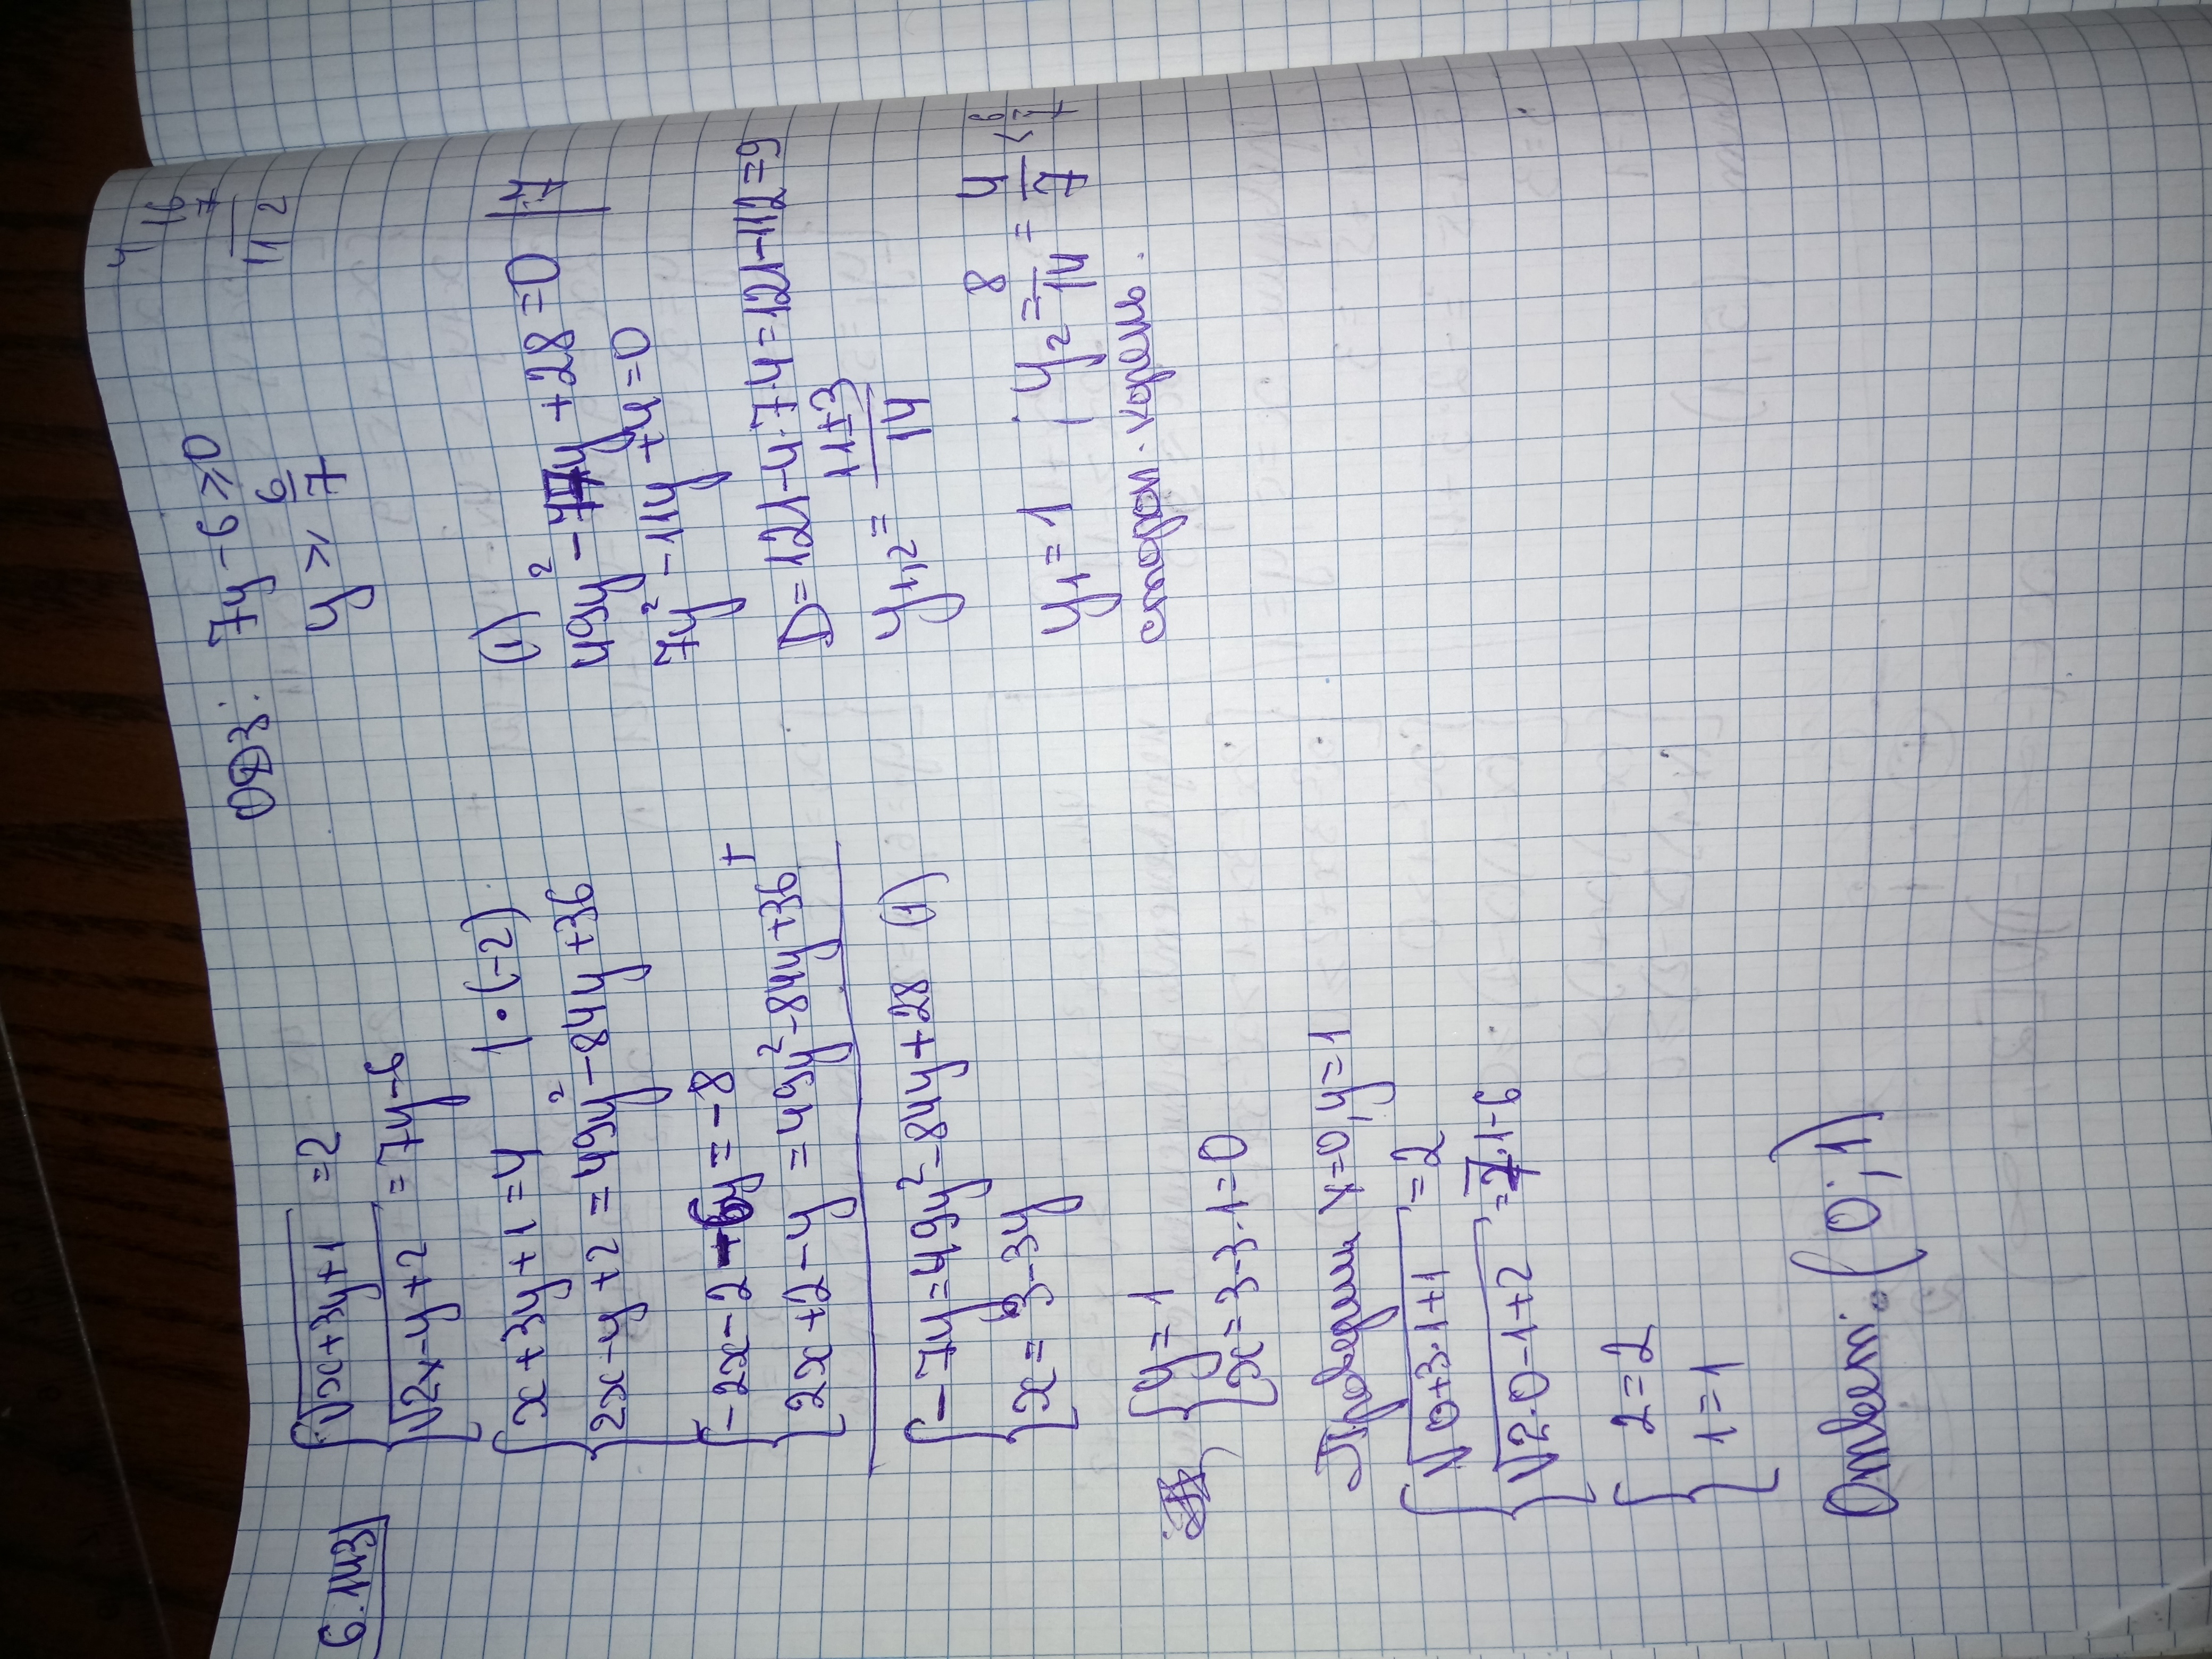 6.143
√x+3y+1 = 2
√2x-y+2 = 7y-6
x+3y+1=4 | • (-2)
2x-y+2=49y²-84y+36
-2x-2-6y=-8
2x+2-y=49y²-84y+36 +
-7y=49y²-84y+28 (1)
x=3-3y
y=1
x=3-3·1=0
Проверим x=0, y=1
√0+3·1+1 = 2
√2·0-1+2 = 7·1-6
2=2
1=1
Ответ: (0;1)
ОДЗ: 7y-6≥0
y ≥ 6/7
4
16
7
112
(1)
49y²-77y+28=0 |:7
7y²-11y+4=0
D=121-4·7·4=121-112=9
y1,2 = 11±3/14
y1=1 ; y2=8/14=4/7 < 6/7
сторон. корень.